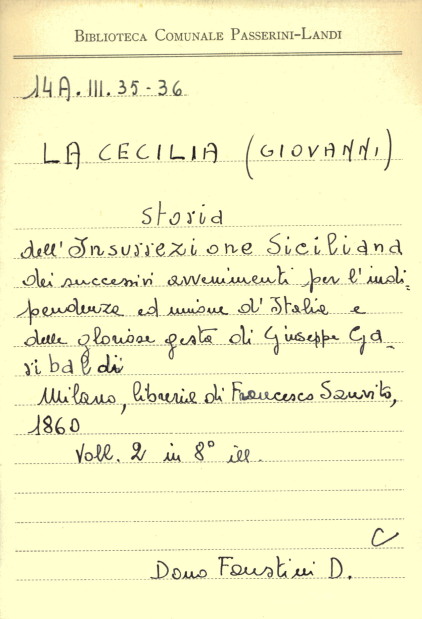 BIBLIOTECA COMUNALE PASSERINI-LANDI
14A.III.35-36
LA CECILIA (GIOVANNI)
Storia
dell'Insurrezione Siciliana
dei successivi avvenimenti per l'indi=
pendenza ed unione d'Italia e
delle gloriose gesta di Giuseppe Ga-
ribaldi
Milano, libreria di Francesco Sanvito,
1860
Voll. 2 in 8° ill.
C
Dono Faustini D.